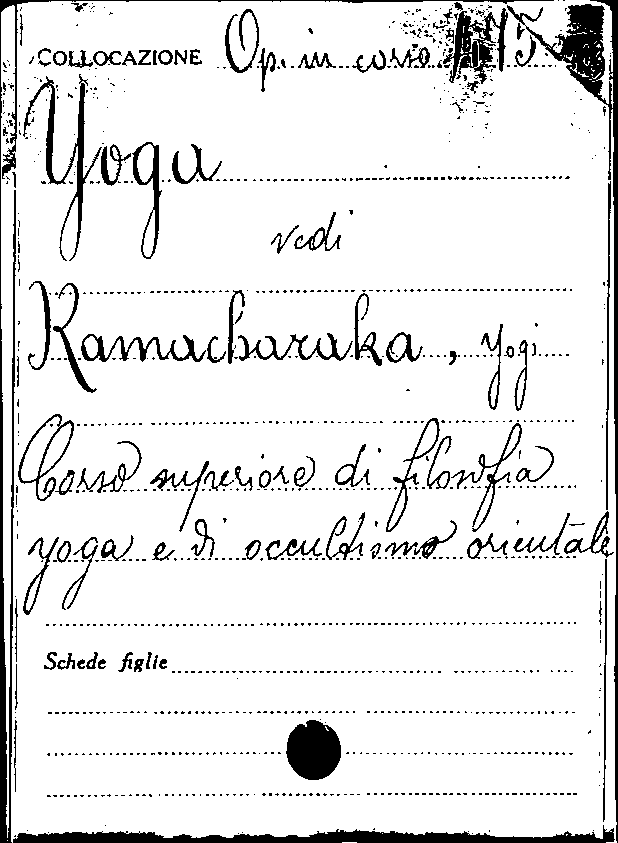 COLLOCAZIONE Op. in corso 175
Yoga
vedi
Ramacharaka, Yogi
Corso superiore di filosofia
yoga e di occultismo orientale
Schede figlie